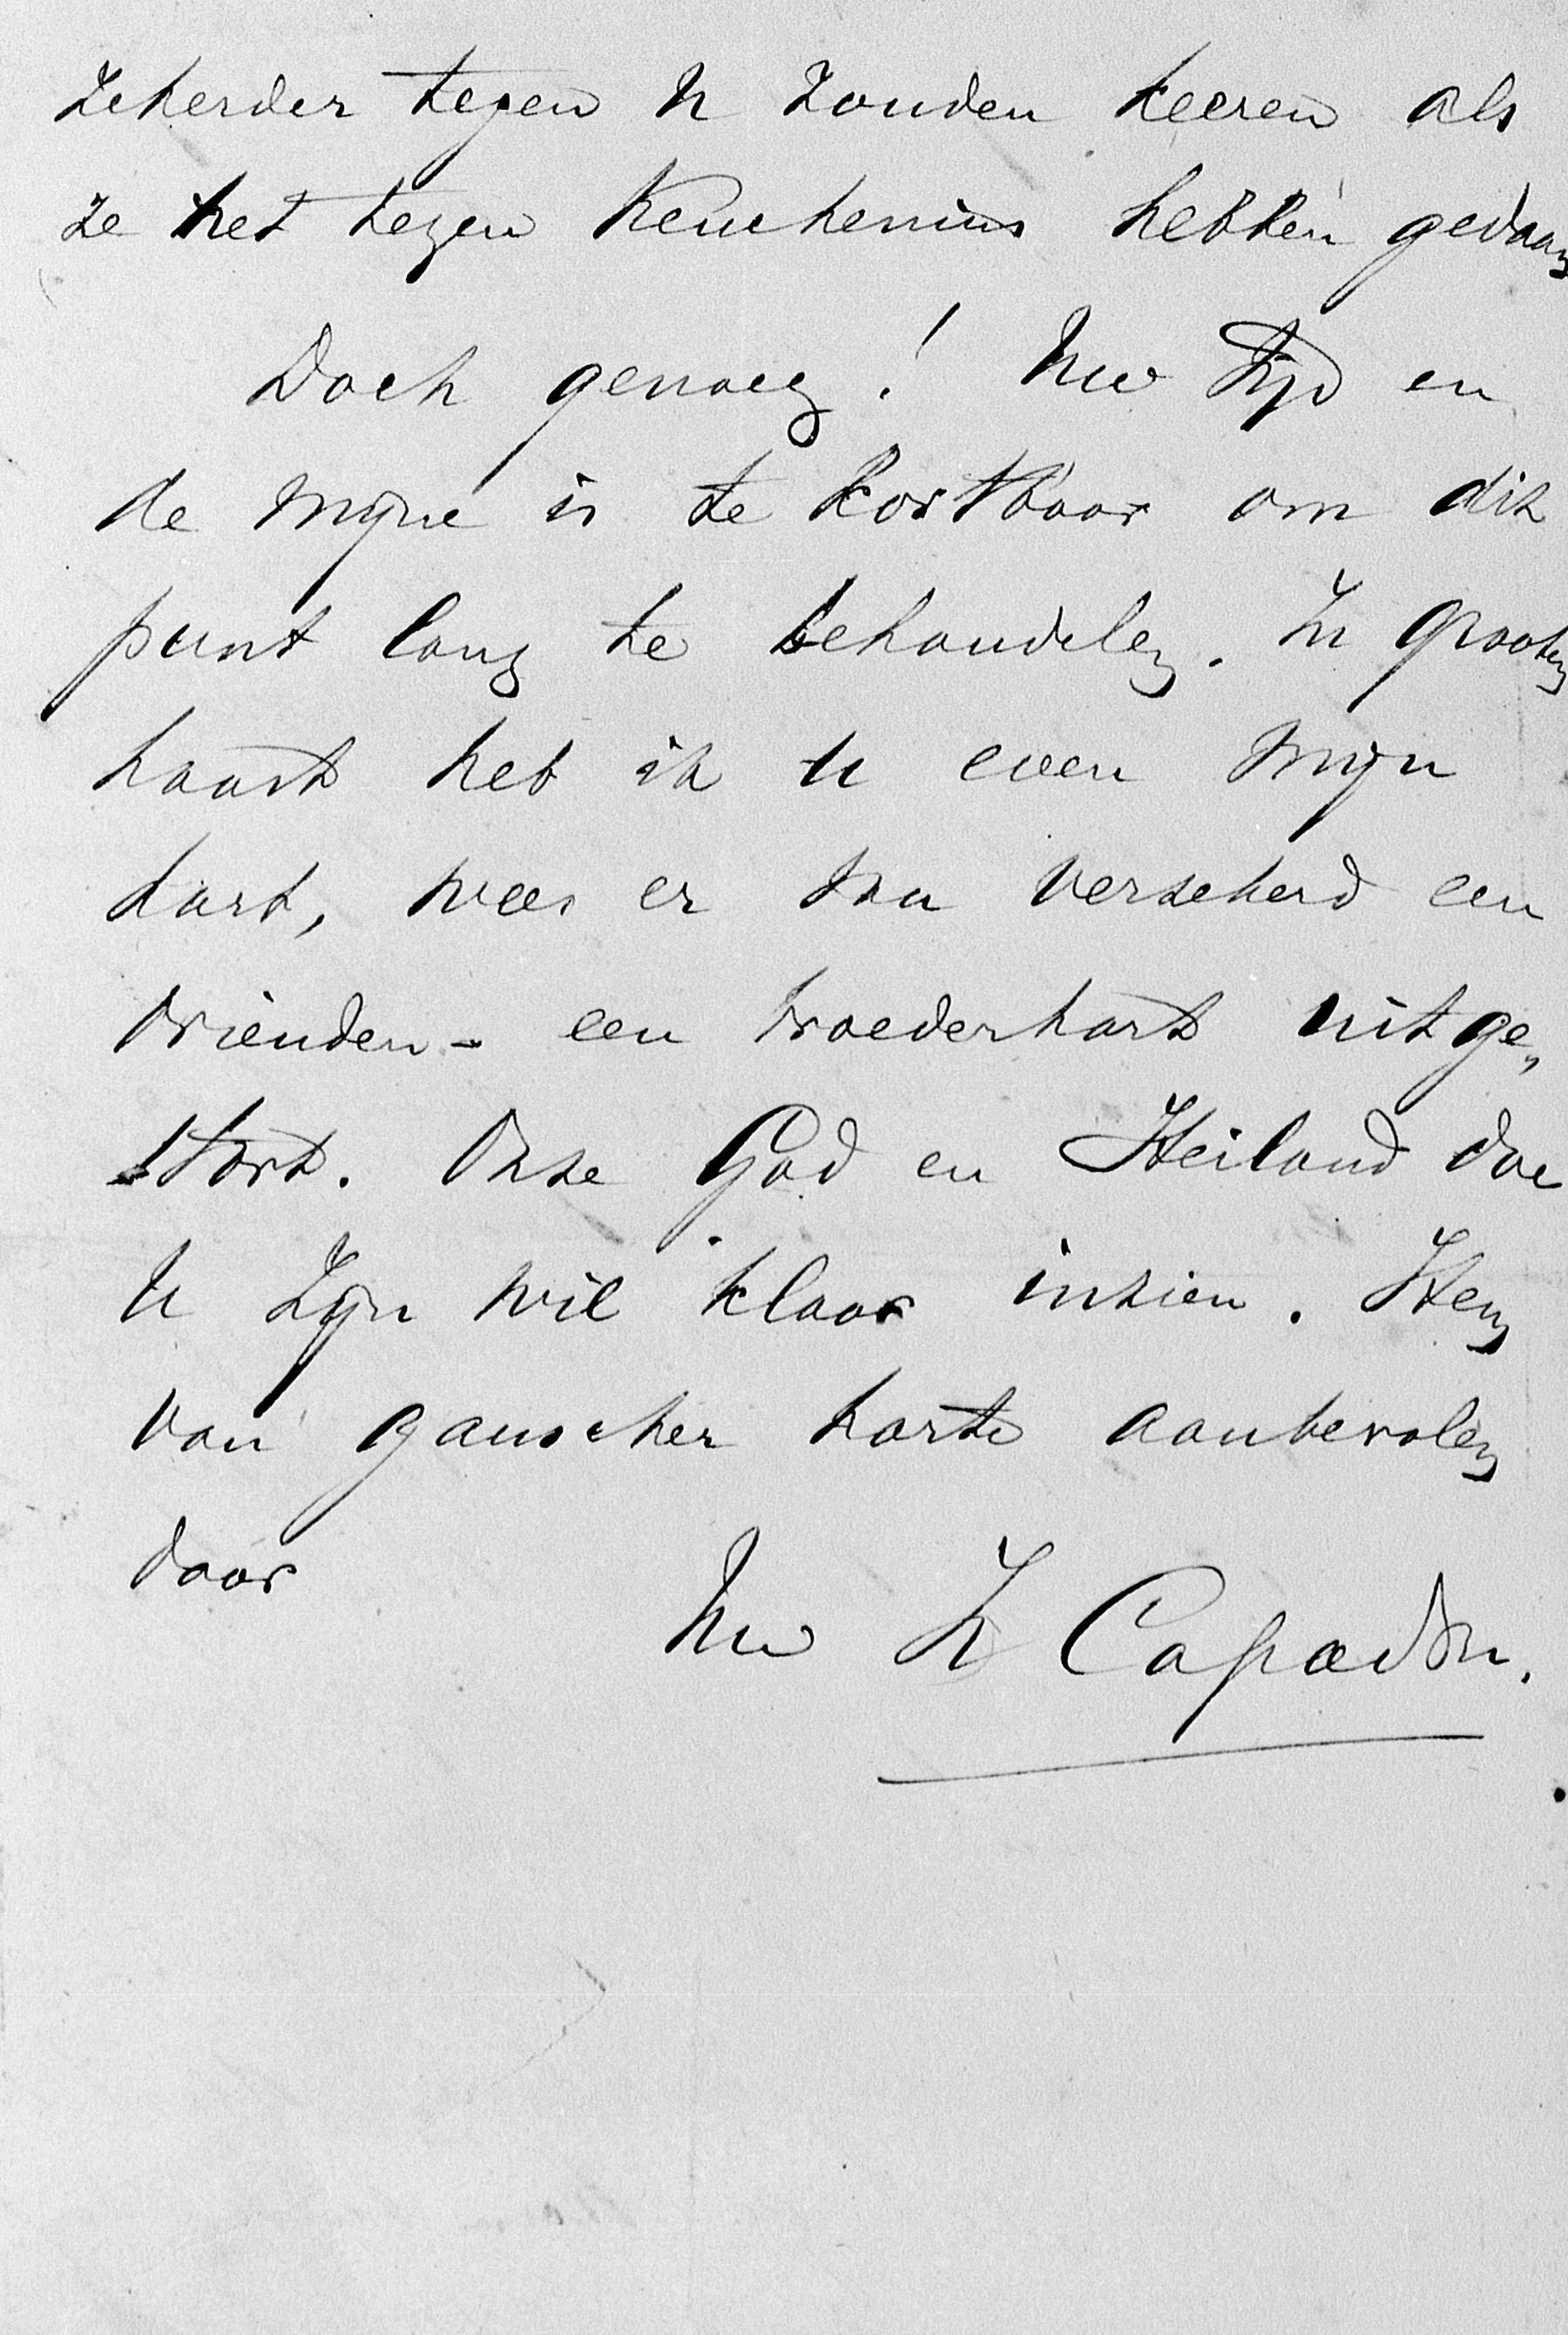 zekerder tegen U zouden keeren als
ze het tegen Keuchenius hebben gedaan
Doch genoeg! Uw tijd en
de mijne is te kostbaar om dit
punt lang te behandelen. In grooten
haast heb ik U even mijn
hart, wees er van verzekerd een
vrienden- een broederhart uitge„
stort. Onze God en Heiland doe
U Zijn wil klaar inzien. Hem
van ganscher harte aanbevolen
door
Uw   Capadose.